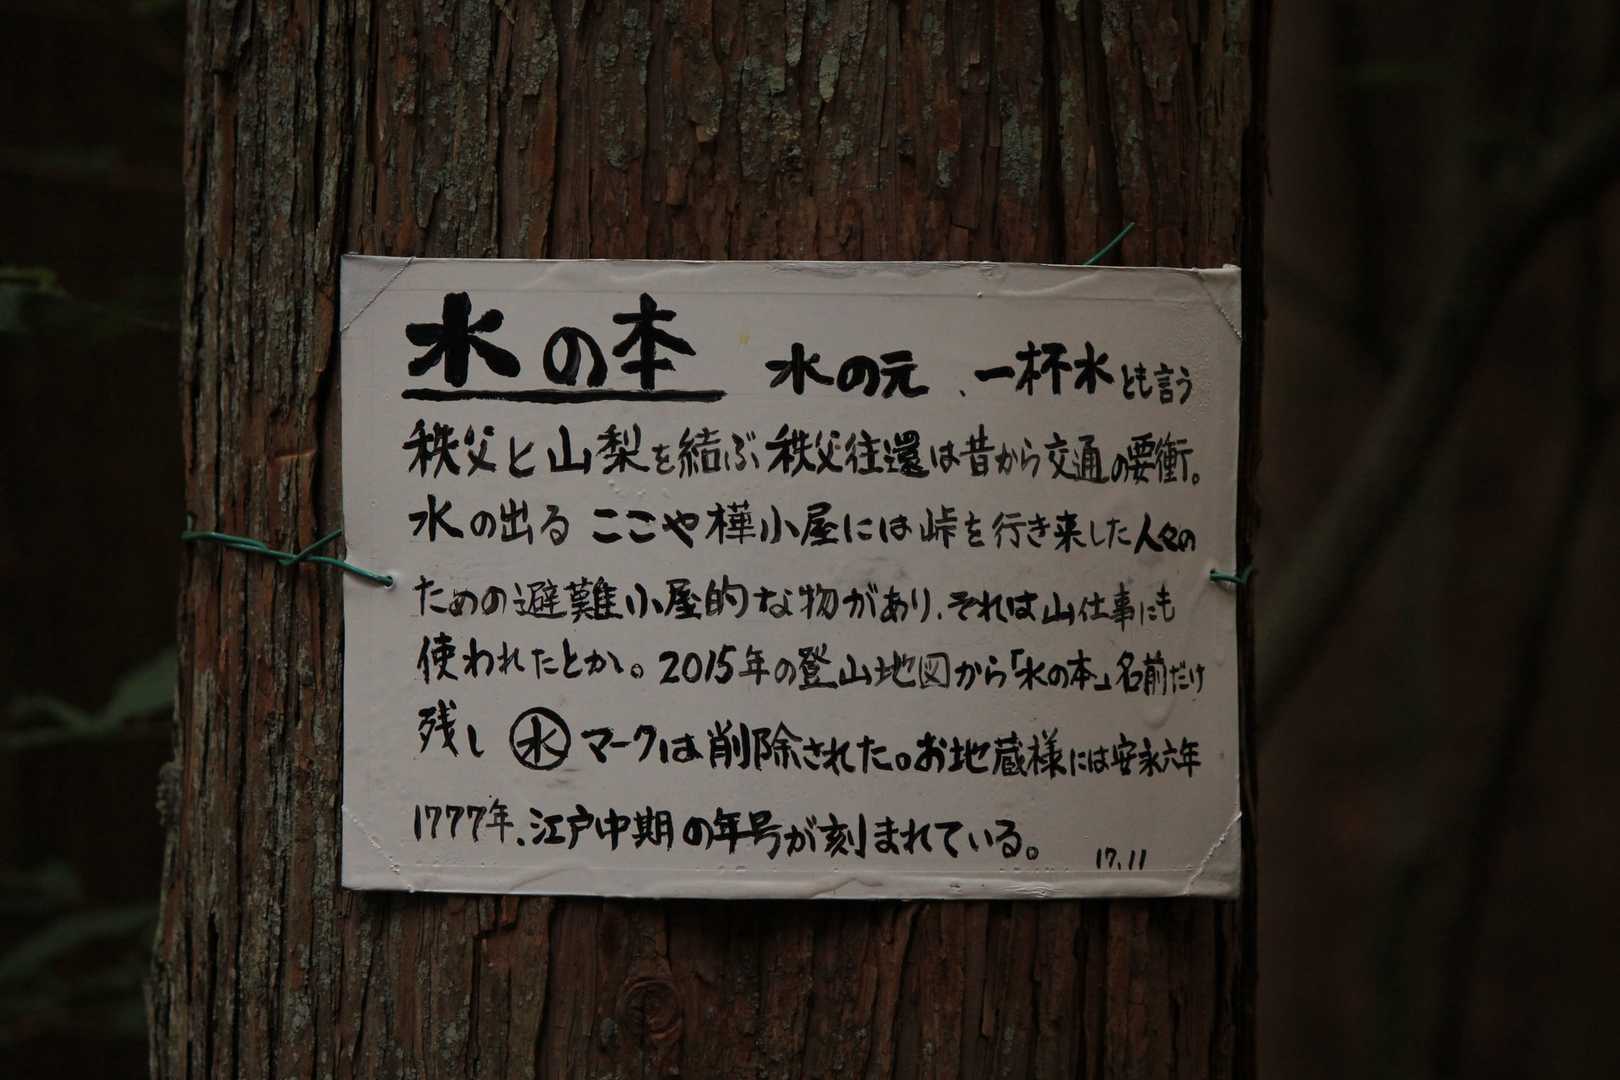 水の本 水の元、一杯水とも言う
秩父と山梨を結ぶ秩父往還は昔から交通の要衝。
水の出るここや樺小屋には峠を行き来した人々の
ための避難小屋的な物があり、それは山仕事にも
使われたとか。2015年の登山地図から「水の本」名前だけ
残し ㊌ マークは削除された。お地蔵様には安永六年
1777年、江戸中期の年号が刻まれている。 17.11